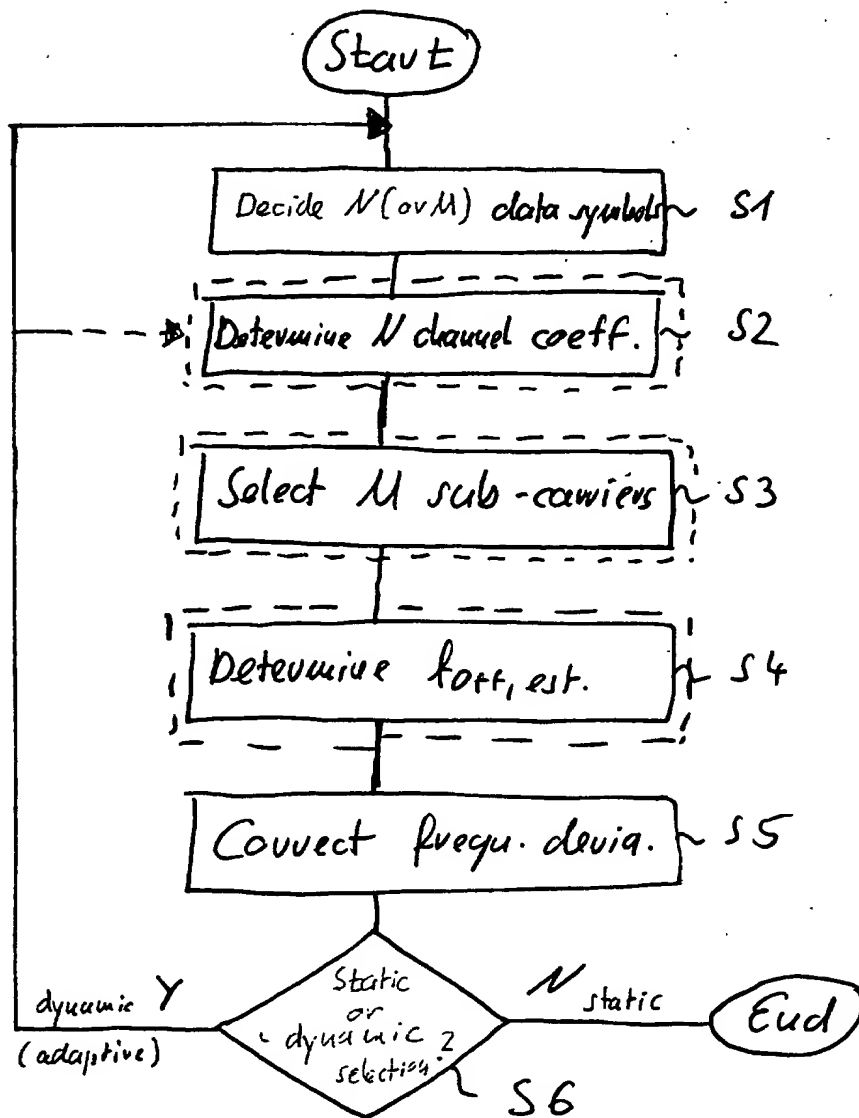 Start
Decide N (or M) data symbols S1
Determine N channel coeff. S2
Select M sub-carriers S3
Determine foff, est. S4
Correct frequ. devia. S5
Static
or
dynamic
selection?
S6
dynamic Y
(adaptive)
N static
End